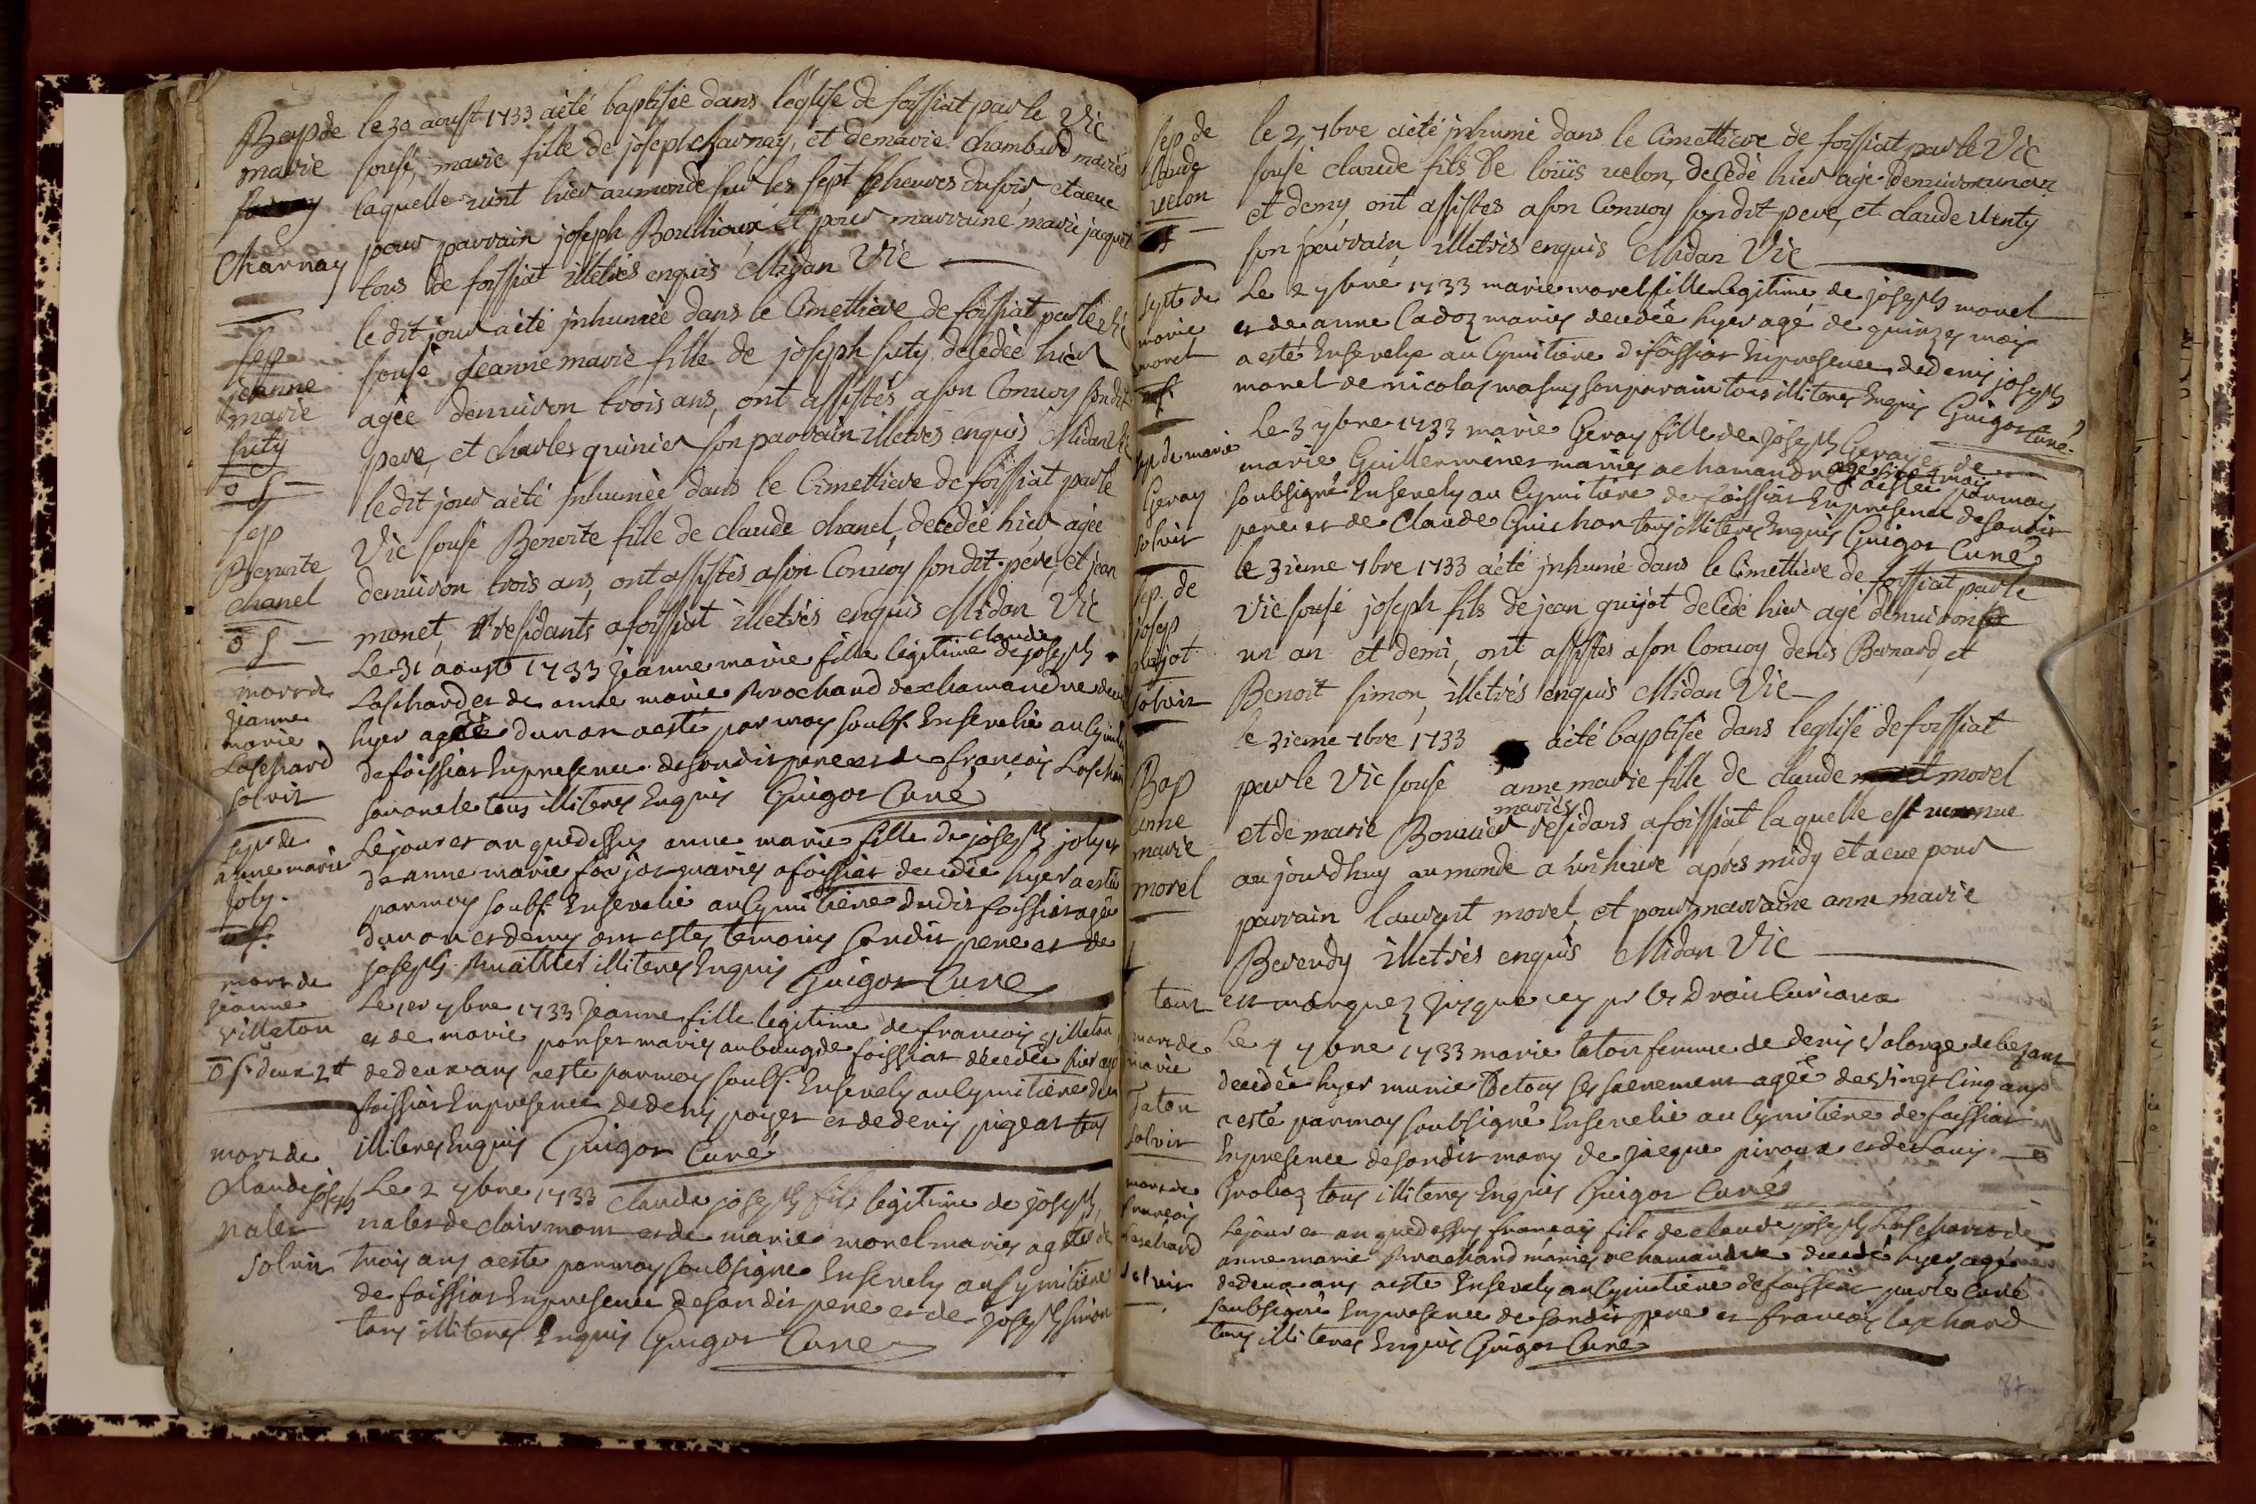 Bap de
marie
Charnay
le 30 aoust 1733 aèté baptisée dans l'eglise de foissiat par le Vic
sousé, marie fille de joseph charnay, et de marie Chambard mariés
laquelle vint hier au monde sur les sept heures du soir, et a eue
pour parrain joseph Boullioux et pour marraine marie jaquet
tous de foissiat illetrés enquis Midan Vic
sep
jeanne
marie
futy
le dit jour aèté jnhumée dans le Cimettiere de foissiat par le vic
sousé jeanne marie fille de joseph futy, decedée hier
agée denviron trois ans, ont assistés a son Convoy son dit
pere, et charles quinier son parrain illetrés enquis Midan Vic
sep
Benoite
chanel
le dit jour aèté jnhumée dans le Cimettiere de foissiat par le
Vic sousé Benoite fille de claude chanel, decedée hier, agée
denviron trois ans, ont assistés a son Convoy son dit pere, et jean
monet, residants a foissiat illetrés enquis Midan Vic
mort de
jeanne
marie
Laschard
solvit
Le 31 aoust 1733 jeanne marie fille legitime de claude joseph
Laschard et de anne marie Brochand de chamandre
hyer agée dun an aesté par moy soubs. Ensevelie au Cymitiere
de foissiat En presence de son dit pere et de françois Laschard
son oncle tous illiteres Enquis Guigot Curé
sep de
anne marie
joly.
Le jour et an que dessus anne marie fille de joseph joly et
de anne marie forjot mariés a foissiat decedée hyer a esté
par moy soubs. Ensevelie au Cymitiere dudit foissiat agée
dun an et demy ont estés temoins son dit pere et de
joseph illiteres Enquis Guigot Curé
mort de
jeanne
villaton
Le 1er 7bre 1733 Jeanne fille legitime de francois villaton
et de marie ponset mariés au bourg de foissiat decedée hier agée
de deux ans aesté par moy soubs. Ensevely au Cymitiere de
foissiat En presence de denis poyet et de denis pigeat tous
illiteres Enquis Guigot Curé
mort de
Claude joseph
nalet
solvit
Le 2 7bre 1733 Claude joseph fils legitime de joseph
nalet de clairmont et de marie morel mariés agé de
trois ans aesté par moy soubsigné Ensevely au Cymitiere
de foissiat En presence de son dit pere et de joseph simon
tous illiteres Enquis Guigot Curé
sep de
claude
velon
le 2, 7bre aèté jnhumé dans le Cimettiere de foissiat par le Vic
sousé claude fils de loüis velon, decedé hier agé denviron un an
et demy, ont assistés a son Convoy son dit pere, et claude Vinty
son parrain, illetrés enquis Midan Vic
sept de
marie
morel
Le 2 7bre 1733 marie morel fille legitime de joseph morel
et de anne Cadoz mariés decedée hyer agé de quinze mois
a esté Ensevelye au Cymitiere de foissiat En presence de denis joseph
morel de nicolas son parain tous illiteres Enquis Guigot Curé
sep de marie
Geray
solvit
Le 3 7bre 1733 marie Geray fille de joseph Geray et de
marie Guillerminet mariés a chamandre agée de 4 mois
a estée par moy
soubsigné Ensevely au Cymitiere de foissiat En presence de son dit
pere et de Claude Guichon tous illiteres Enquis Guigot Curé
sep. de
josep
guijot
solvit
le 3ieme 7bre 1733 aèté jnhumé dans le Cimettiere de foissiat par le
Vic sousé joseph fils de jean guijot decedé hier agé denviron
un an et demi, ont assistés a son Convoy denis Bernard, et
Benoit simon, illetrés enquis Midan Vic
Bap
anne
marie
morel
le 3ieme 7bre 1733 aèté baptisée dans leglise de foissiat
par le Vic sousé anne marie fille de claude morel
et de marie Bouvier mariés residans a foissiat laquelle est venue
au jourdhuy au monde a une heure après midy et a eue pour
parrain laurent morel, et pour marraine anne marie
Berendy illetrés enquis Midan Vic
tout est marquez jusque icy pr les Droits Curiaux
mort de
marie
Taton
solvit
Le 4 7bre 1733 marie taton femme de denis Valange de besant
decedée hyer munie de tous ses sacrements agée de Vingt Cinq ans
aesté par moy soubsigné Ensevelie au Cymitiere de foissiat
En presence de son dit mary de jacque piroux et de Louis
Groboz tous illiteres Enquis Guigot Curé
mort de
francois
Laschard
solvit
Le jour et an que dessus francois fils de claude joseph Laschard et de
anne marie Brochand mariés a chamandre decedé hyer agé
de deux ans aesté Ensevely au Cymitiere de foissiat par le Curé
soubsigné En presence de son dit pere et francois laschard
tous illiteres Enquis Guigot Curé
87